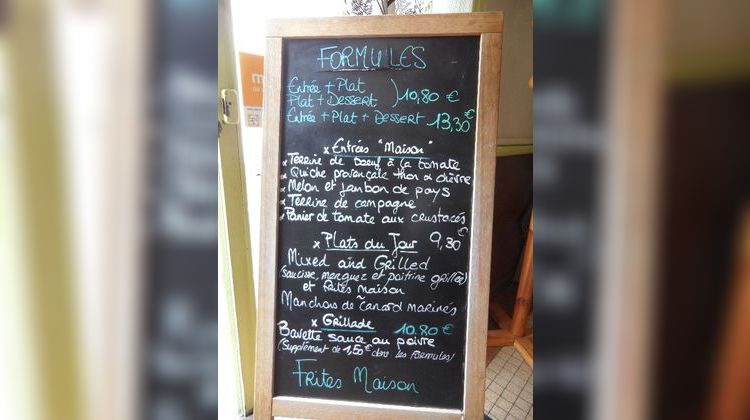 FORMULES
Entrée + Plat
Plat + Dessert ) 10,80 €
Entrée + Plat + Dessert 13,30 €
x Entrées "Maison"
x Terrine de boeuf à la tomate
x Quiche provençale thon & chèvre
x Melon et jambon de pays
x Terrine de campagne
x Panier de tomate aux crustacés
x Plats du Jour 9,30 €
Mixed and Grilled
(saucisse, merguez et poitrine grillée)
et frites maison
Manchons de canard marinés
x Grillade 10.80 €
Bavette sauce au poivre
(Supplément de 1,50 € dans les formules)
Frites Maison